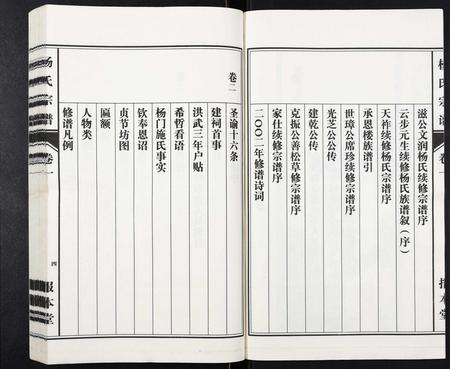 杨氏宗谱
卷一
滋公文润杨氏续修宗谱序
云步元生续修杨氏族谱叙（序）
天祚续修杨氏宗谱序
承恩楼族谱引
世璋公席珍续修宗谱序
光芝公公传
建乾公传
克振公善松草修宗谱序
家仕续修宗谱序
二〇〇二年修谱诗词
卷二
圣谕十六条
建祠首事
洪武三年户贴
希哲看语
杨门施氏事实
钦奉恩诏
贞节坊图
匾额
人物类
修谱凡例
杨氏宗谱
卷一
四
报本堂